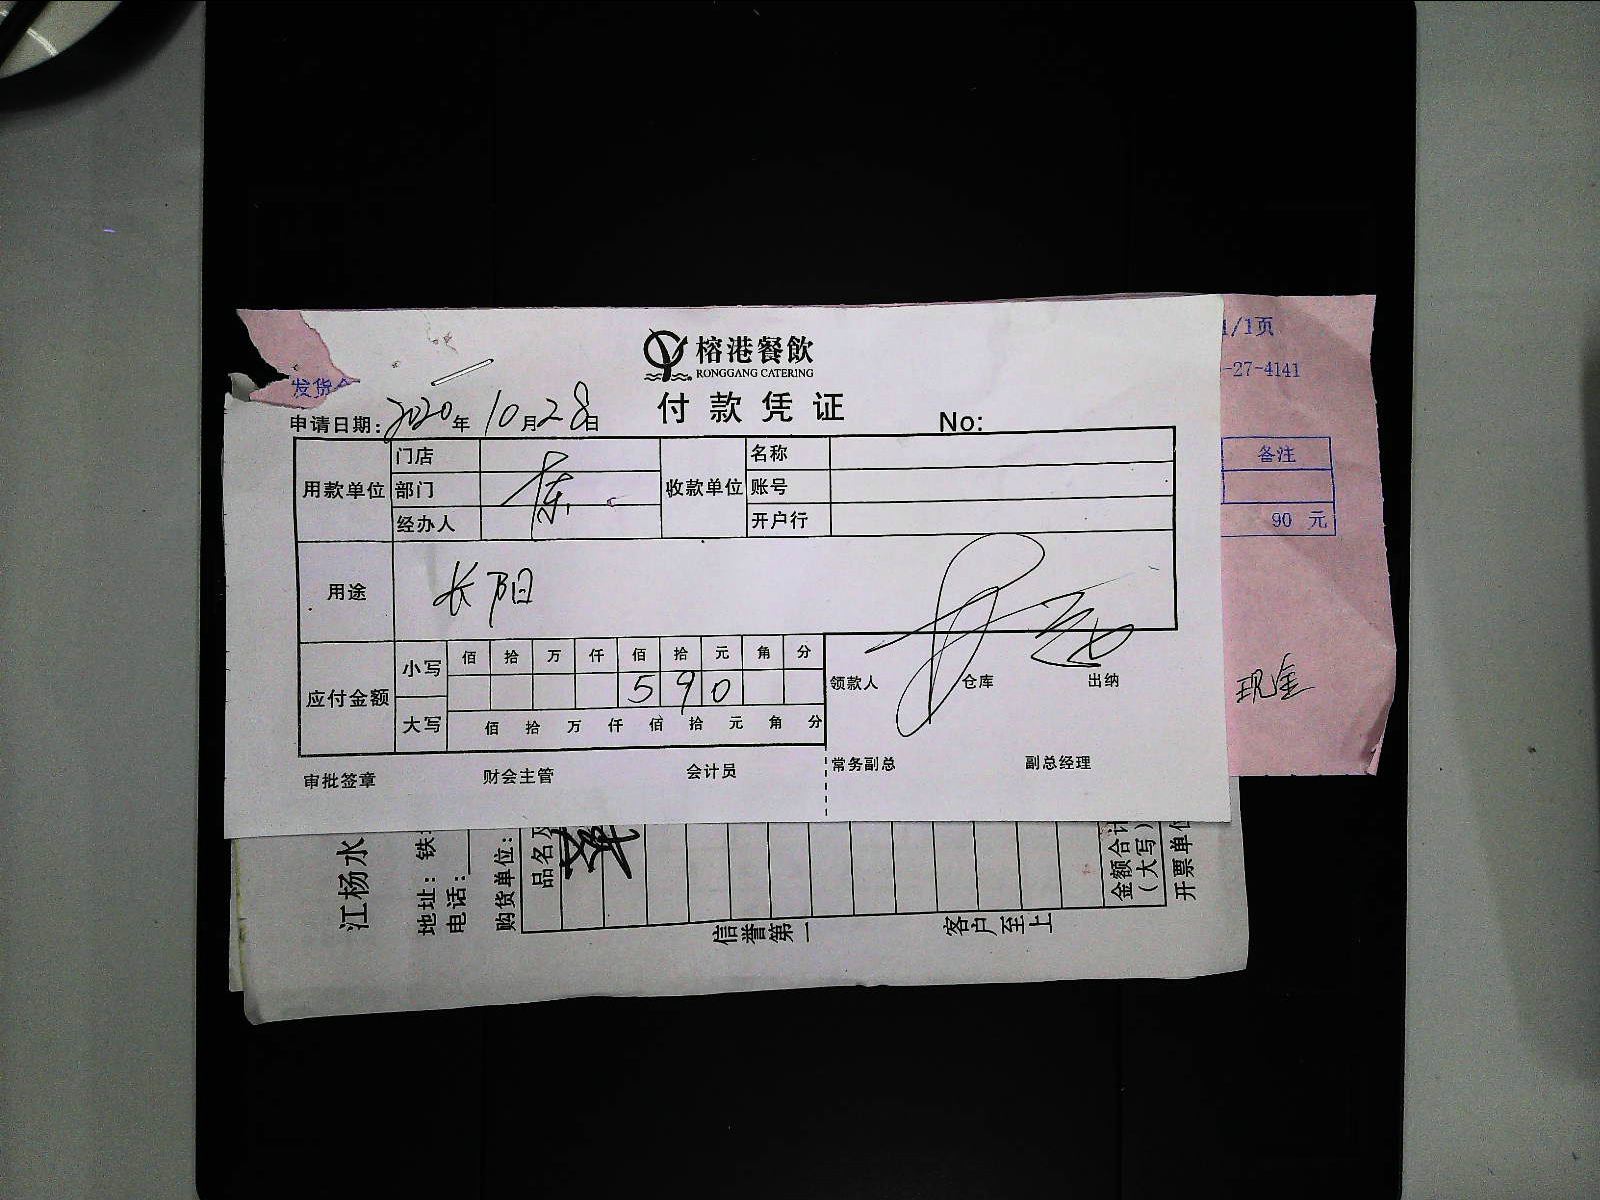 榕港餐飲
RONGGANG CATERING
付款凭证
申请日期: 2020年10月28日 No:
用款单位 门店 收款单位 名称
部门 账号
经办人 开户行
用途 长阳
应付金额 小写 佰 拾 万 仟 佰 拾 元 角 分
5 9 0
大写 佰 拾 万 仟 佰 拾 元 角 分
领款人 仓库 出纳
审批签章 财会主管 会计员 常务副总 副总经理
发货
1/1页
-27-4141
备注
90 元
现金
江杨水
地址: 铁
电话:
购货单位:
品名及
金额合计
(大写)
开票单位
信誉第一
客户至上